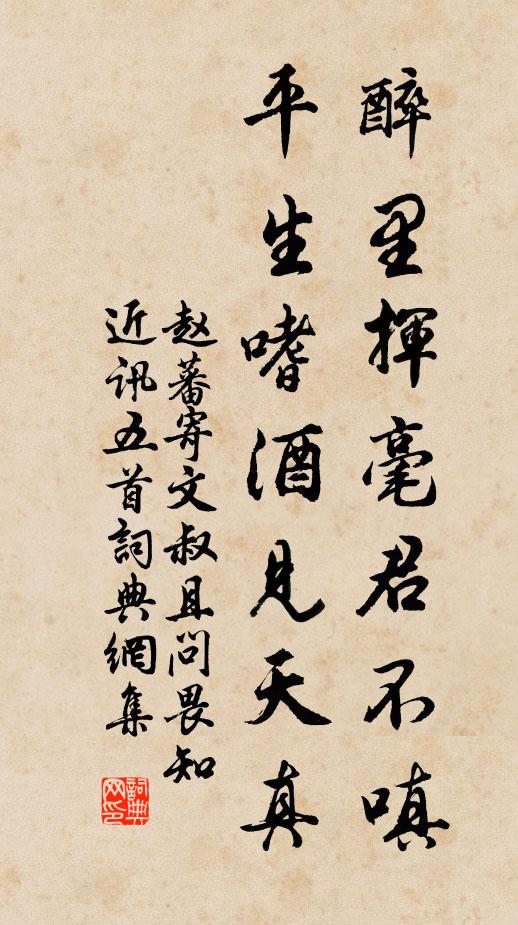 醉里揮毫君不嗔
平生嗜酒見天真
赵蕃寄文叔且問畏知
近訊五首詞典網集
詞典
网印